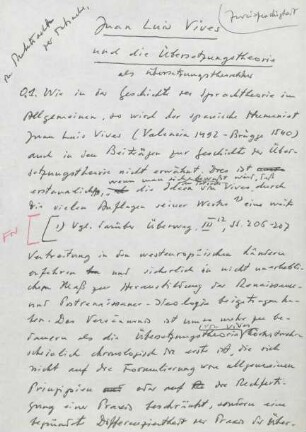 Juan Luis Vives
und die Übersetzungstheorie
als Übersetzungstheoretiker
0.1. Wie in der Geschichte der Sprachtheorie im
Allgemeinen, so wird der spanische Humanist
Juan Luis Vives (Valencia 1492 - Brügge 1540)
auch in den Beiträgen zur Geschichte der Über-
setzungstheorie nicht erwähnt. Dies ist
erstaunlich, wenn man
die Ideen von Vives durch
die vielen Auflagen seiner Werke 1) eine weite
FN [1) Vgl. darüber Überweg, III 12, SS. 206-207
Verbreitung in den westeuropäischen Ländern
erfahren und sicherlich in nicht unerheb-
lichem Maß zur Herausbildung des Renaissance-
und Postrenaissance- beigetragen ha-
ben. Das Versäumnis ist umso mehr zu be-
dauern als die Übersetzungstheorie von Vives höchstwahr-
scheinlich chronologisch die erste ist, die sich
nicht auf die Formulierung von allgemeinen
Prinzipien oder auf die Rechtfer-
tigung einer Praxis beschränkt, sondern eine
begründet Differenziertheit der Praxis des Über-